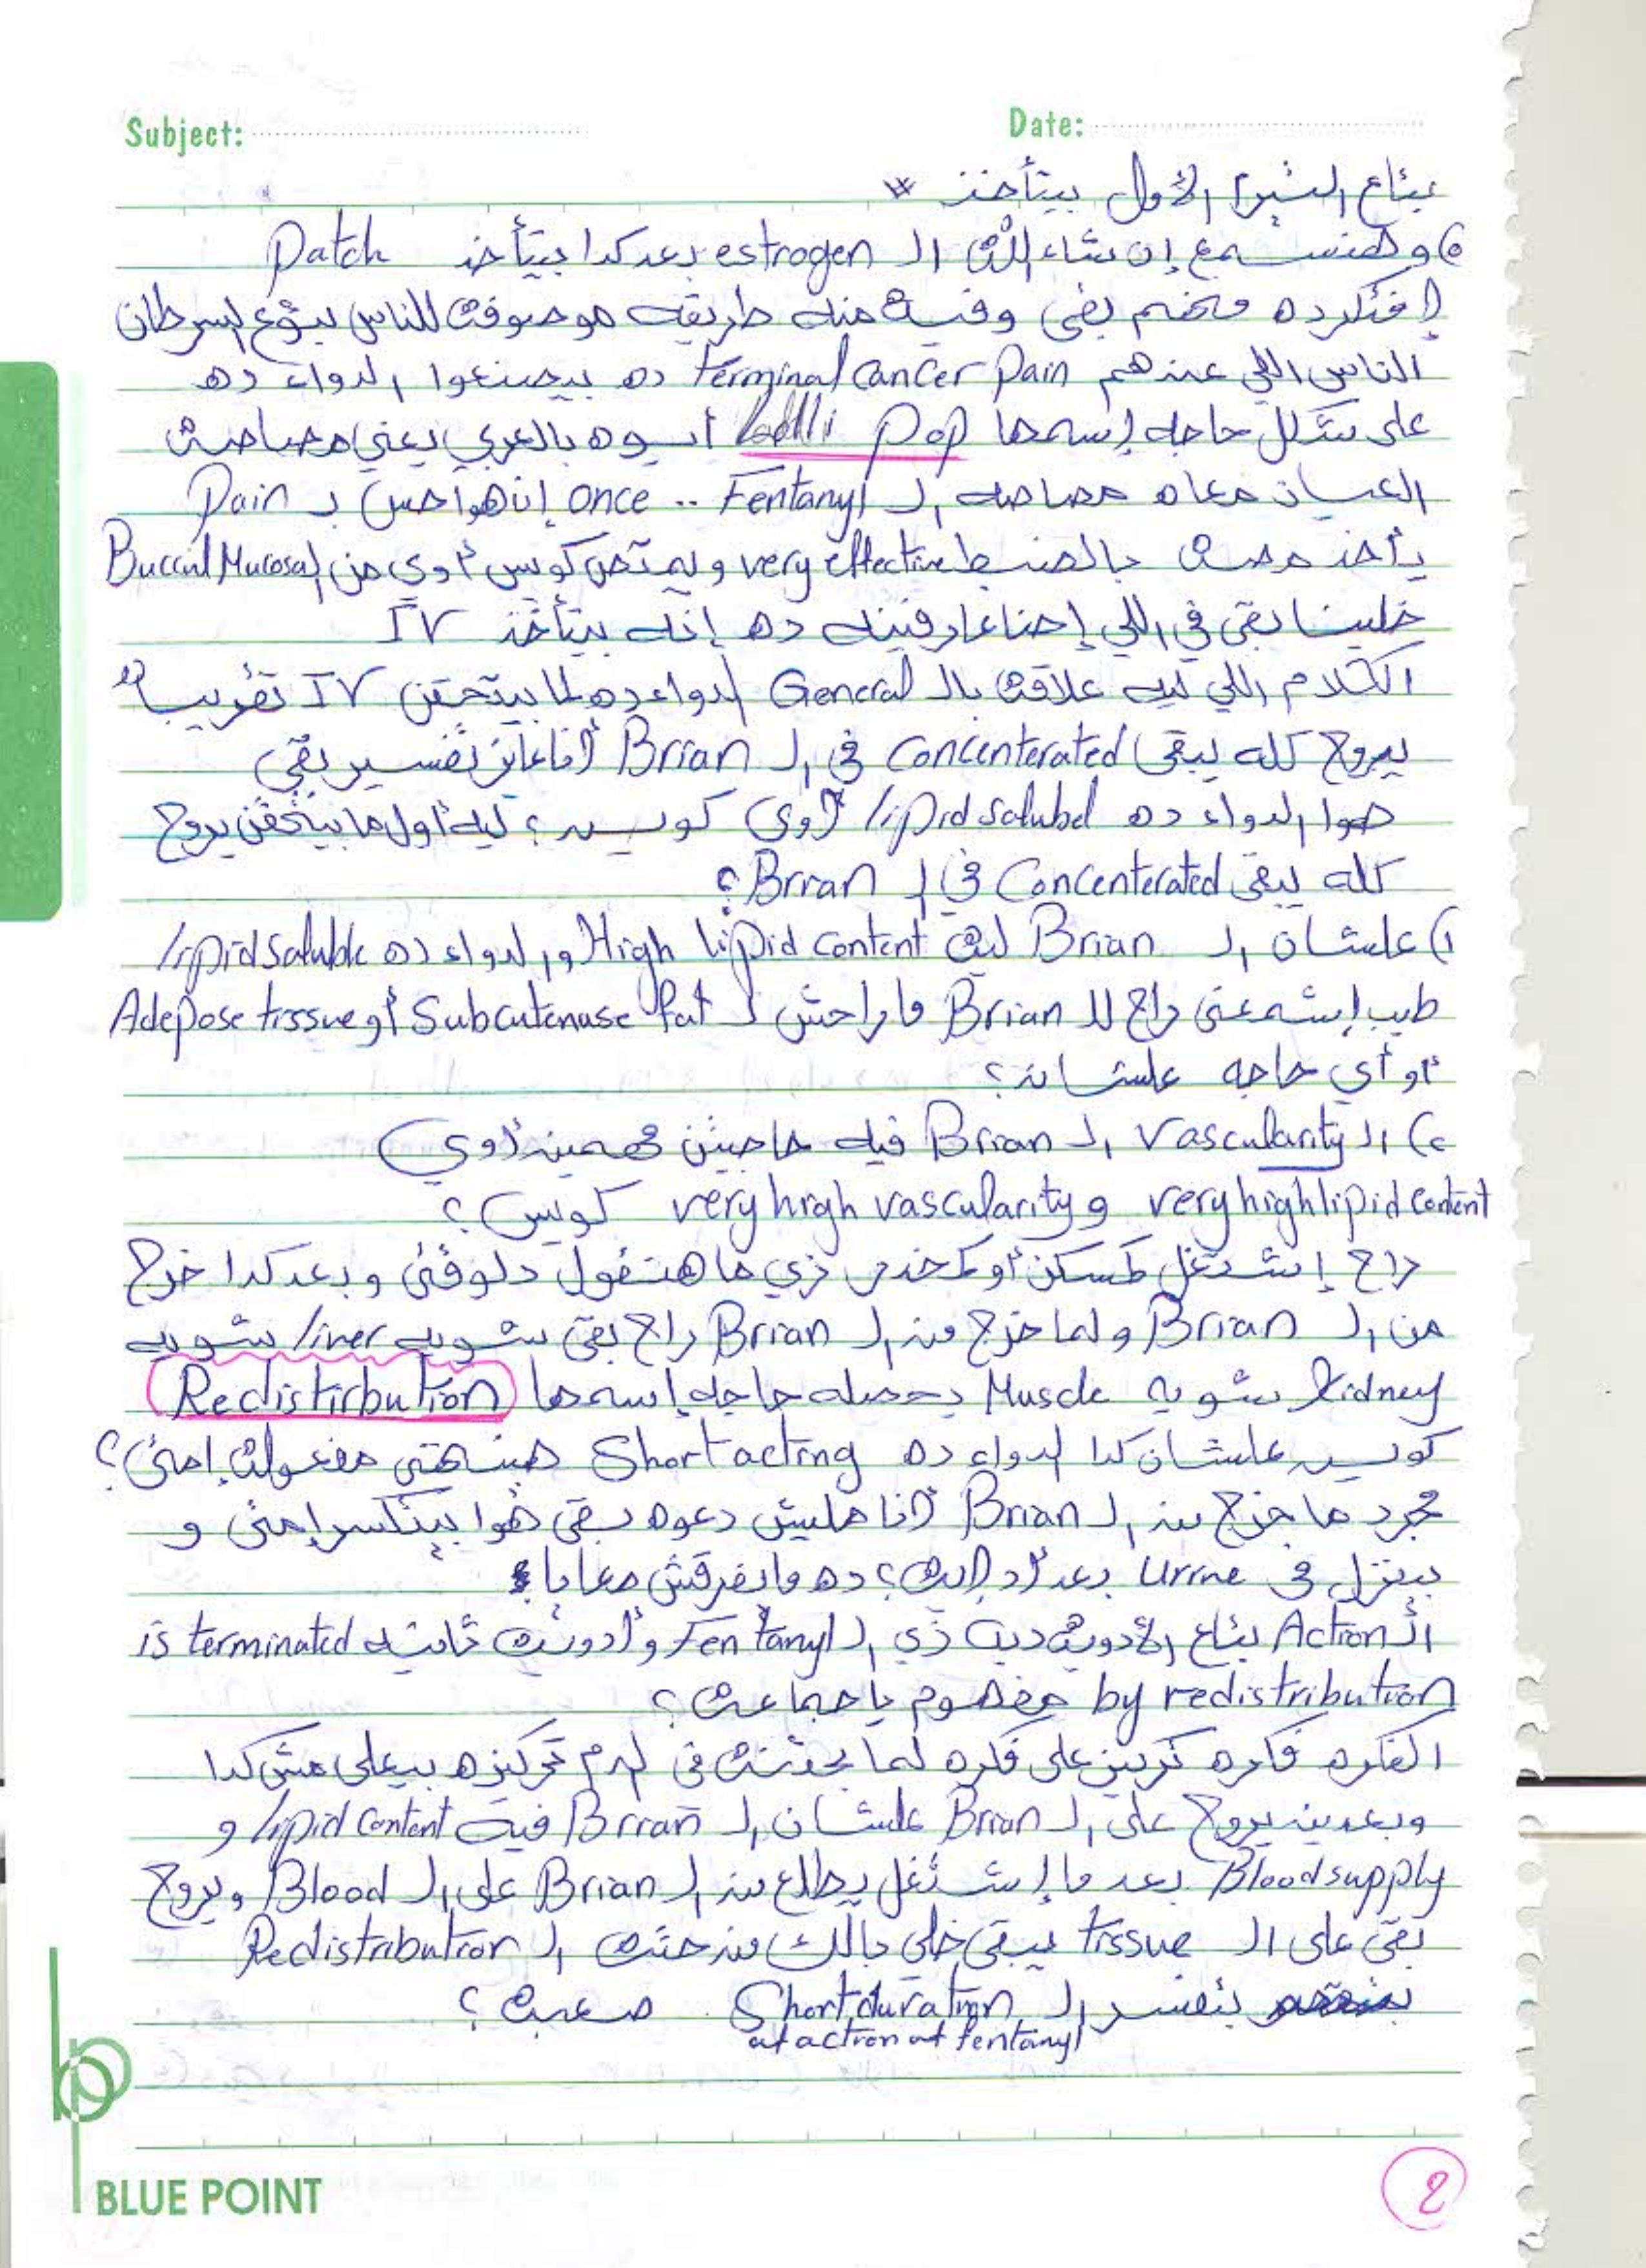 Subject: Date:
بتاع الشهر الأول بيتأخذ *
وهنسمع إن شاء الله الـ estrogen بعد كدا بيتأخذ Patch
إفتكر ده مخدم بقى وفيه منه طريقه موصوفة للناس بتوع السرطان
الناس اللي عندهم terminal cancer Pain ده بيصنعوا الدواء ده
على شكل حاجه إسمها lolli pop أيوه بالعربي يعني مصاصة
العيان معاه مصاصه الـ Fentanyl .. once إن هوا حس بـ Pain
ياخذ مصة بالضبط very effective و يمتص كويس أوي من الـ Buccul Mucosa
خلينا بقى في اللي إحنا عارفينه ده إنه بيتأخذ IV
الكلام اللي ليه علاقة بالـ General الدواء ده لما بيتحقن IV تقريباً
بيروح كله يبقى concenterated في الـ Brian أنا عايز تفسير بقى
هوا الدواء ده lipid solubel أوي كويس ؟ ليه أول ما بيتحقن يروح
كله يبقى Concenterated في الـ Brian ؟
١) علشان الـ Brian ليه High lipid content و الدواء ده lipid soluble
طيب إشمعنى راح للـ Brian ما راحش لـ Adepose tissue أو Subcutenuse fat
أو أي حاجه علشان ؟
٢) الـ Vascularity الـ Brian فيه حاجتين مهمين أوي
very high lipid content و very high vascularity كويس ؟
راح إشتغل كمسكن أو كمخدر زي ما هنقول دلوقتى و بعد كدا خرج
من الـ Brian و لما خرج من الـ Brian راح بقى شويه liver شويه
Kidney شويه Muscle يحصله حاجه إسمها Redistirbution
كويس علشان كدا الدواء ده Short acting هينتهي مفعوله إمتى ؟
مجرد ما خرج من الـ Brian أنا مليش دعوه بقى هوا بيتكسر إمتى و
بينزل في Urine بعد أد إيه ؟ ده ما يفرقش معايا
الـ Action بتاع الأدوية دية زي الـ Fentanyl و أدوية تانيه is terminated
by redistribution مفهوم يا جماعة ؟
الفكره فكره تركيز على فكره لما بحقنه في الدم تركيزه بيعلى مش كدا
وبعدين يروح على الـ Brian علشان الـ Brian فيه lipid content و
Blood supply بعد ما إشتغل يطلع من الـ Brian على الـ Blood و يروح
بقى على الـ tissue يبقى خلي بالك من حتة الـ Redistribution
بتفسر الـ Short duration صعبة ؟
of action of fentanyl
BLUE POINT
2